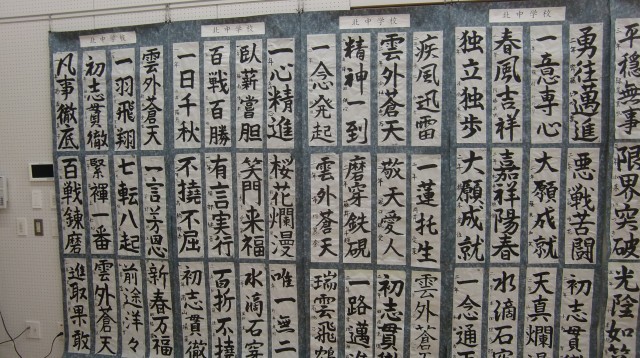 北中学校
北中学校
北中学校
北中学校
平穏無事
限界突破
光陰如
勇往邁進
一意専心
春風吉祥
独立独歩
悪戦苦闘
大願成就
嘉祥陽春
大願成就
初志貫
天真爛
水滴石
一念通
疾風迅雷
雲外蒼天
精神一到
一念発起
一蓮托生
敬天愛人
磨穿鉄硯
雲外蒼天
雲外蒼
初志貫徹
一路邁進
瑞雲飛鶴
一心精進
臥薪嘗胆
百戦百勝
一日千秋
桜花爛漫
笑門来福
有言実行
不撓不屈
唯一無二
水滴石穿
百折不撓
初志貫徹
雲外蒼天
一羽飛翔
初志貫徹
凡事徹底
一言芳恩
七転八起
緊褌一番
百戦錬磨
新春万福
前途洋々
雲外蒼天
進取果敢